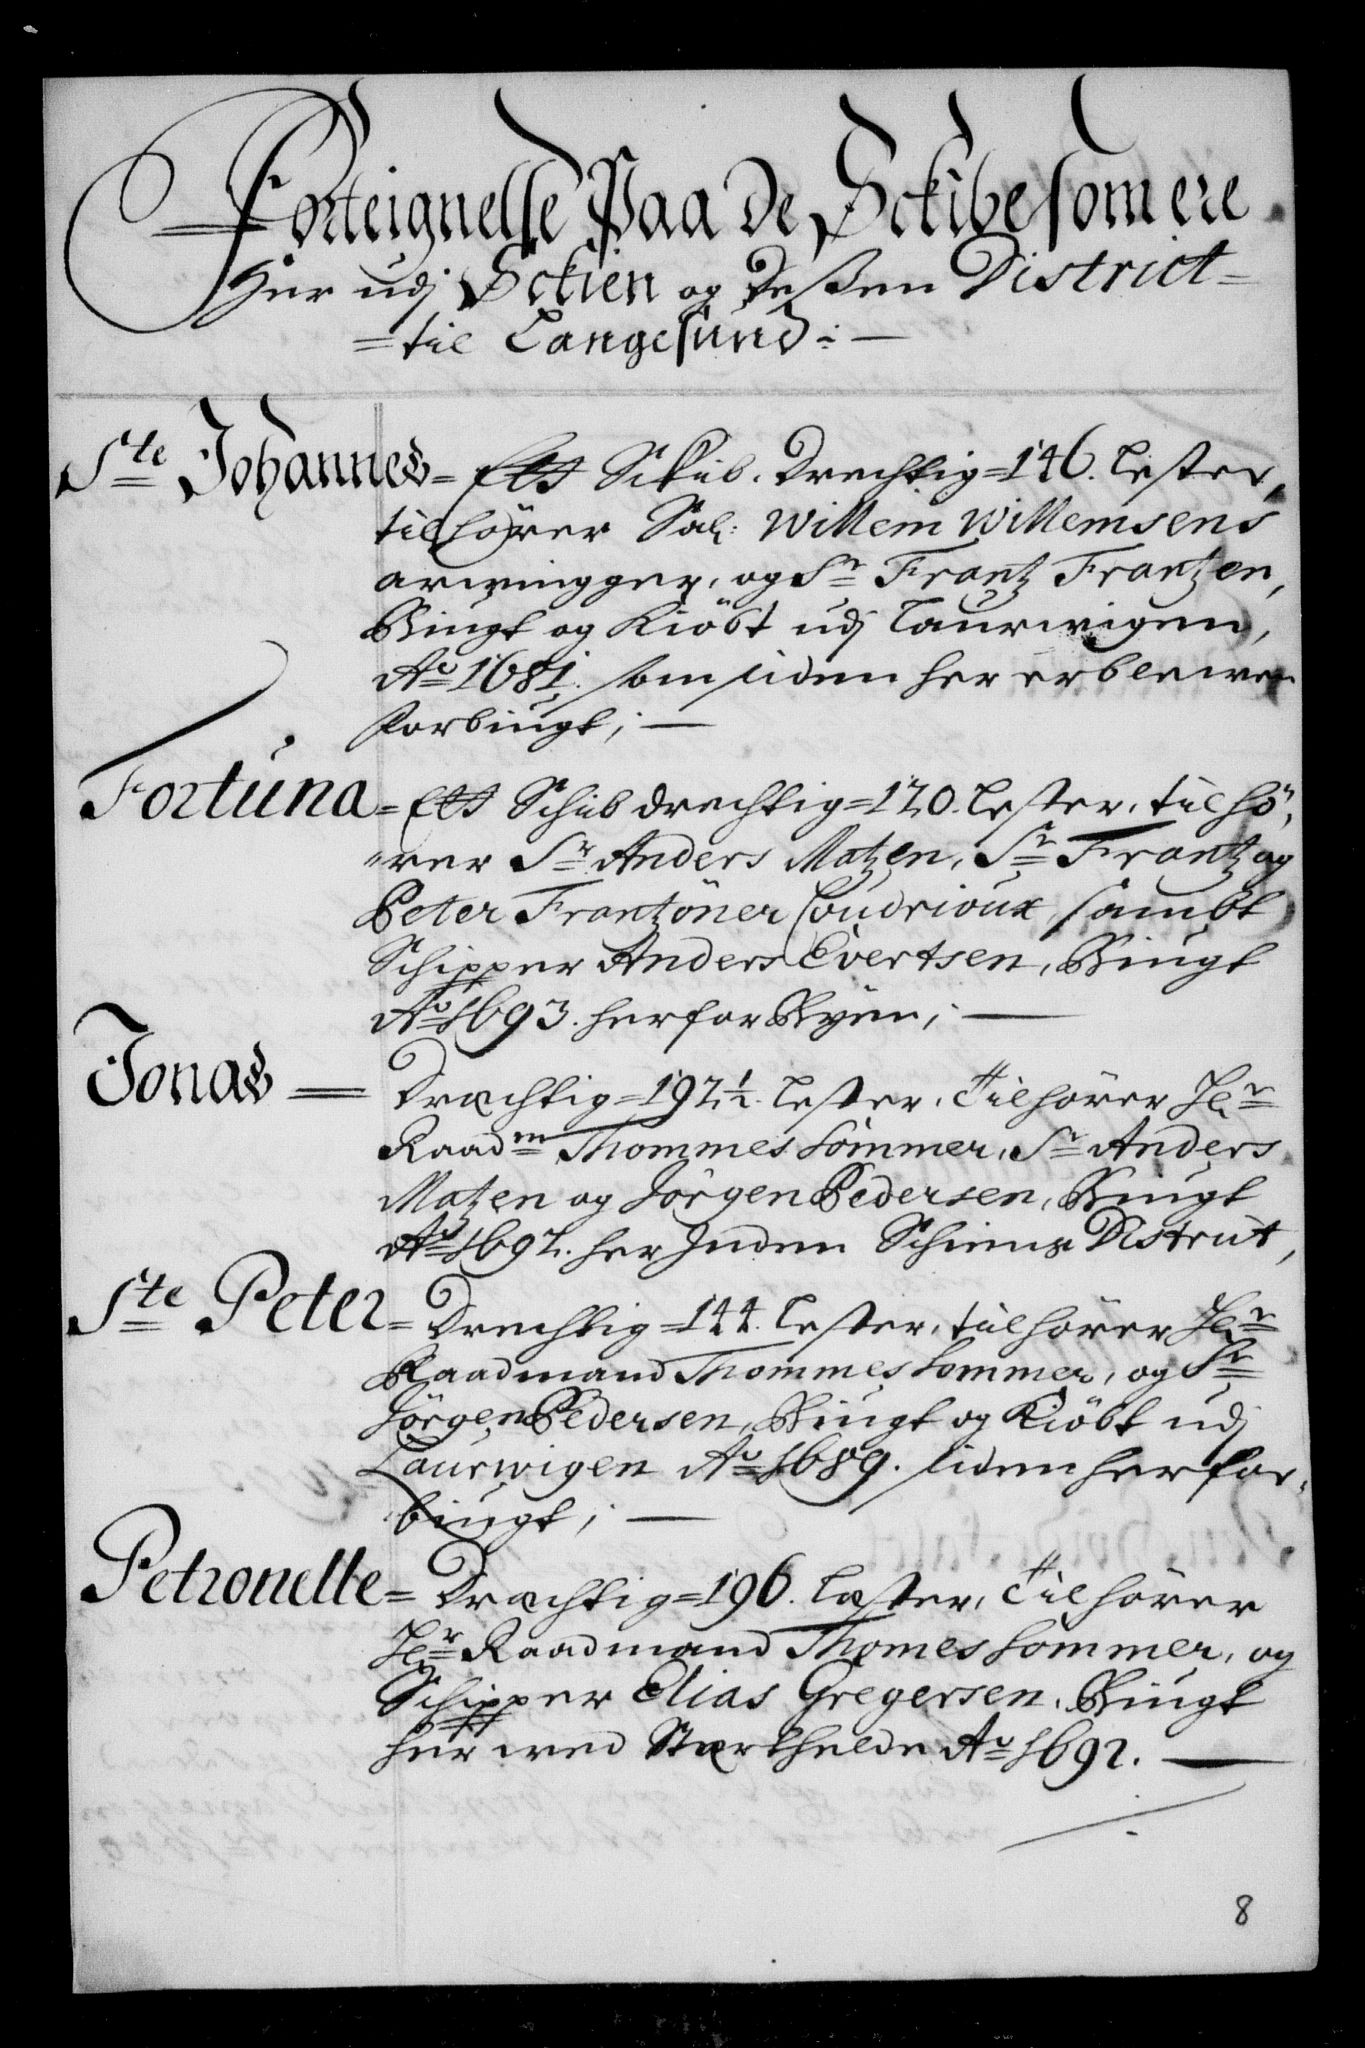 Forteignelse Paa de Sckibe som ere
Her udj Sckien og Dessen District=
=til Langesund:—
Ste Johannes= Ett Skib. Drechtig=146. Lester,
tilhörer Sal: Willem Willemsens
arwingger, og Sr Frantz Frantzen,
Bÿugt og Kiöbt udj Laurwigen,
Ao 1681. som siden her er blewen
forbÿugt; —
Fortuna= Ett Schib drechtig=120. Lester, tilhö,
"rer Sr Anders Matzen, Sr Frantz og
Peter Frantöner Coudrioux, sambt
Schipper Anders Evertsen, Bÿugt
Ao 1693. her for Byen; —
Jonas = Drachtig=192½. Lester, Tilhörer Hr
Raadm Thommes Sommer, Sr Anders
Matzen og Jörgen Pedersen, Bÿugt
Ao 1692. her Inden Schiens District,
Ste Peter= Drechtig=144. Lester, tilhörer Hr
Raadmand Thommes Sommer, og Sr
Jörgen Pedersen, Bÿugt og Kiöbt udj
Laurwigen Ao 1689. siden her for,
bÿugt; —
Petronelle= Drachtig=196. Laster, Tilhörer
Hr Raadmand Thomes Sommer, og
Schipper Elias Gregersen, Bÿugt
her wed Starthelde Ao 1692. —
8